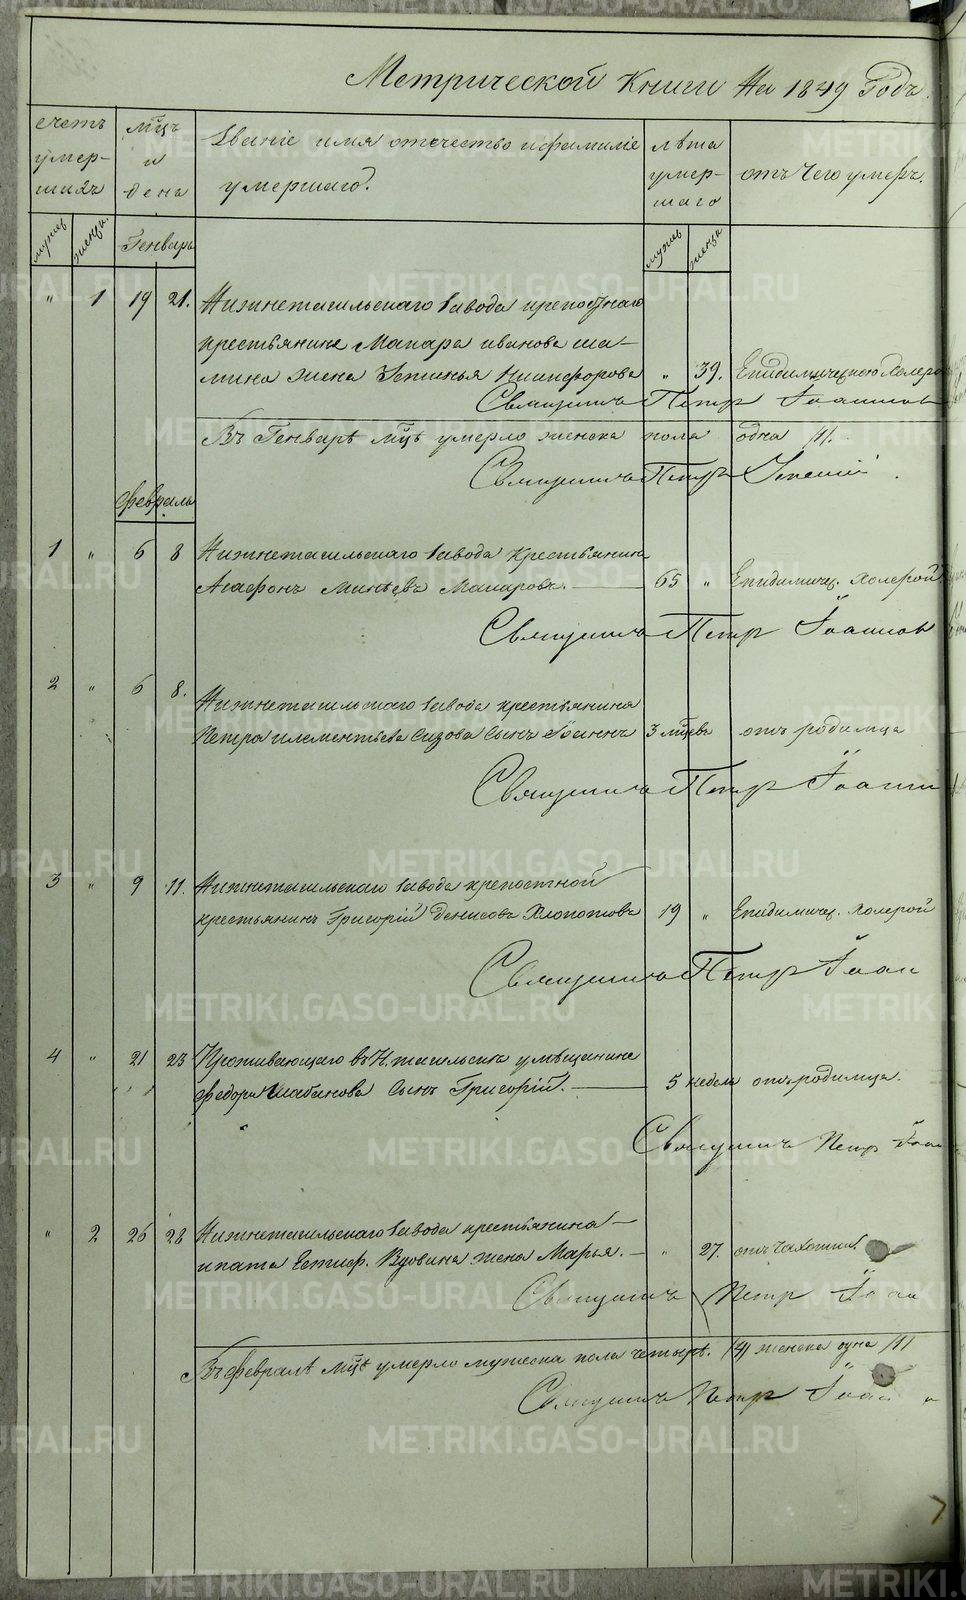 Метрической Книги На 1849 Годъ.
счетъ умер-шихъ
мцъ и дена
Званіе имя отечество и фамиліе умершаго.
лѣта умер-шаго
отъ Чего умеръ.
мужес женца.
Генварь
мужес женца
" 1 19 21. Нижнетагильскаго Завода крепостнаго
крестьянина Макара иванова ша-
мина жена Устинья Никифорова " 39. Епидимическою Холерой
Священникъ Петръ Іоанновъ
Въ Генварѣ мцѣ умерло женска пола одна /1/.
Священникъ Петръ
февраль
1 " 6 8 Нижнетагильскаго Завода Крестьянинъ
Агафонъ Минѣевъ Макаровъ. 65 " Епидимичес. Холерой
Священникъ Петръ Іоанновъ
2 " 6 8. Нижнетагильскаго Завода крестьянина
Петра илементьева Сизова Сынъ Іоаннъ 3 мцѣва отъ родимца
Священникъ Петръ Іоанн
3 " 9 11. Нижнетагильскаго Завода крепостной
крестьянинъ Григорій Денисовъ Хлопотовъ 19 " Епидимичес. Холерой
Священникъ Петръ Іоан
4 " 21 23 Проживающаго въ Н. тагильскѣ умѣщанина
Федора Шабанова Сынъ Григорій. 5 недель отъ родимца.
Священникъ Петръ Іоан
" 2 26 28 Нижнетагильскаго Завода крестьянина
ипата Естиф. Вдовина жена Марья. " 27. отъ Чахотки
Священникъ Петръ Іоан
Въ Февралѣ мцѣ умерло мужеска пола четыре. /4/ женска одна /1/
Священникъ Петръ Іоан
METRIKI.GASO-URAL.RU